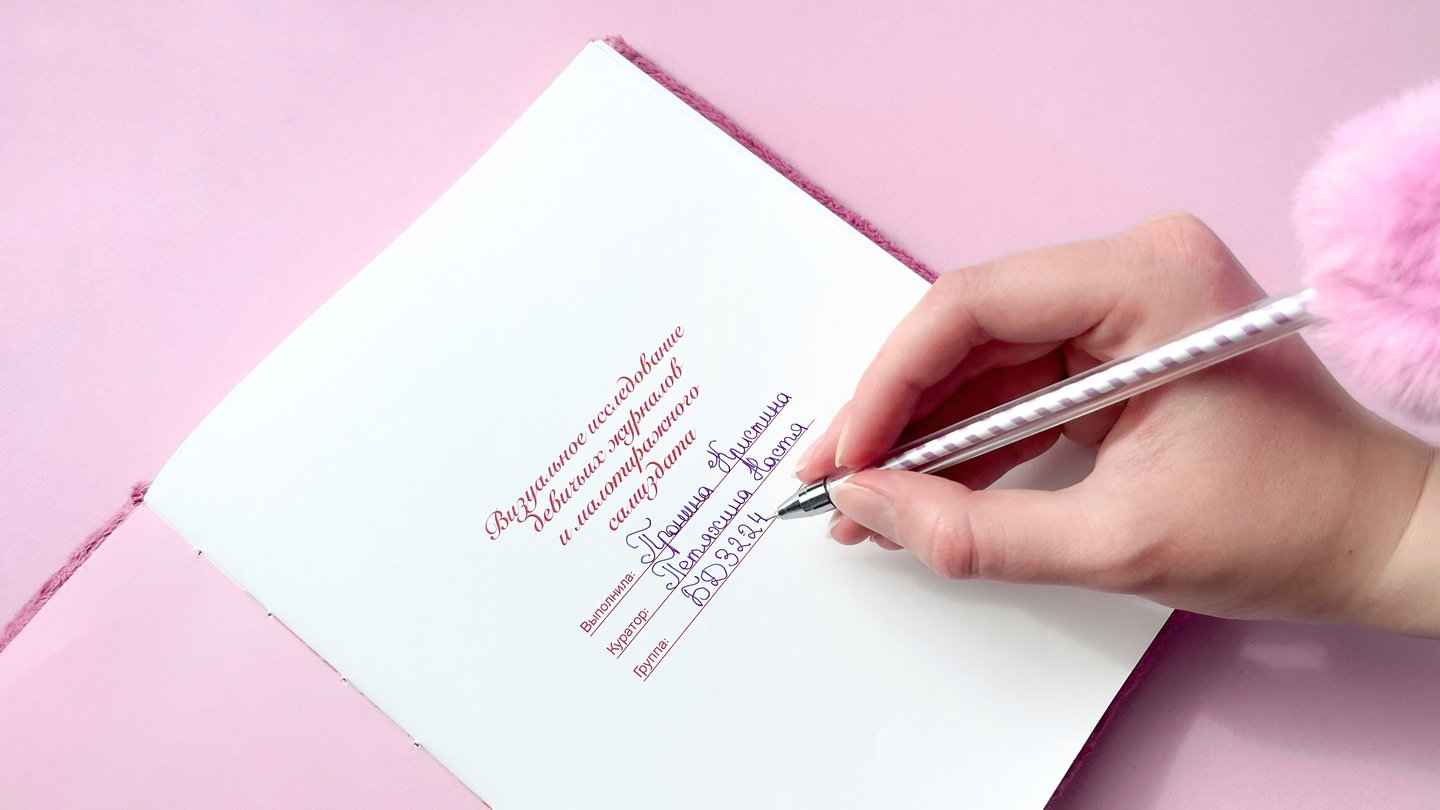 Визуальное исследование
девичьих журналов
и малотиражного
самиздата
Выполнила: Пронина Кристина
Куратор: Петяхина Настя
Группа: БД3224